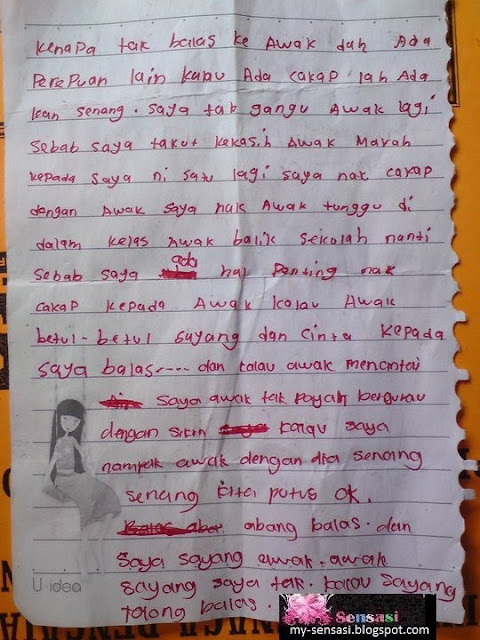 kenapa tak balas ke Awak dah Ada
Perepuan lain kalau Ada cakap lah Ada
kan senang. saya tak gangu Awak lagi
Sebab saya takut kekasih Awak Marah
kepada saya ni satu lagi saya nak cakap
dengan Awak saya nak Awak tunggu di
dalam kelas Awak balik sekolah nanti
Sebab saya ada hal Penting nak
cakap kepada Awak kalau Awak
betul-betul sayang dan cinta kepada
saya balas---- dan kalau awak mencintai
saya awak tak payah bergurau
dengan kalau saya
nampak awak dengan dia senang
senang kita putus ok.
abang balas. dan
saya sayang awak. awak
sayang saya tak. kalau sayang
tolong balas.
U-idea
Sensasi
my-sensasi.blogspot.com